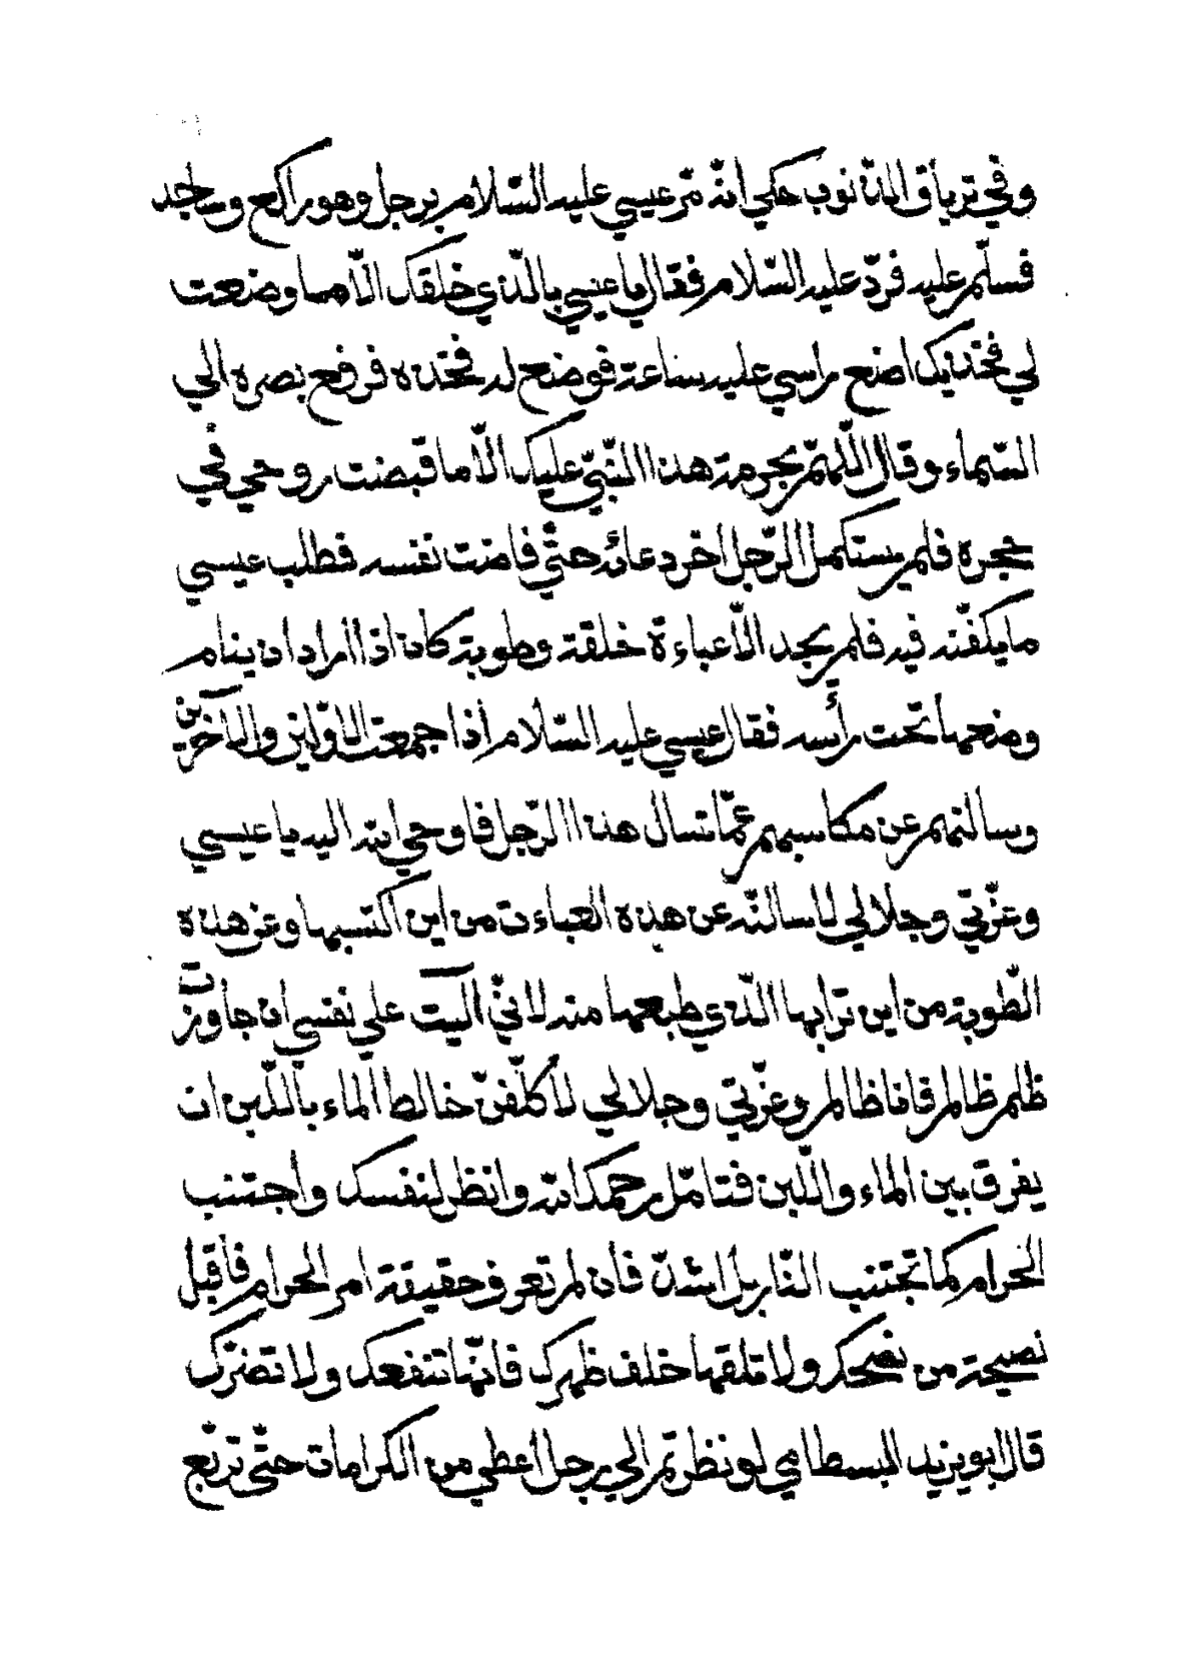 وفي ترياق الذنوب حكي انّه مرّ عيسي عليه السّلام برجل وهو راكع وساجد
فسلّم عليه فردّ عليه السّلام فقال يا عيسي بالّذي خلقك الّا ما وضعت
لي فخذيك اضع راسي عليه ساعة فوضع له فخذه فرفع بصره الي
السّماء وقال اللهمّ بحرمة هذا النّبيّ عليك الّا ما قبضت روحي في
حجره فلم يستكمل الرّجل اخر دعائه حتّي فاضت نفسه فطلب عيسي
ما يكفّنه فيه فلم يجد الّا عباءة خلقة وطوبة كان اذا اراد ان ينام
وضعها تحت رأسه فقال عيسي عليه السّلام اذا جمعت الاوّلين والآخرين
وسالتهم عن مكاسبهم عمّا تسال هذا الرّجل فاوحي الله اليه يا عيسي
وعزّتي وجلالي لاسالنّه عن هذه العباءت من اين اكتسبها وعن هذه
الطّوبة من اين ترابها الّذي طبعها منه لانّي آليت علي نفسي ان جاوزت
ظلم ظالم فانا ظالم وعزّتي وجلالي لاكلّفنّ خالط الماء باللّبن ان
يفرق بين الماء واللّبن فتامّل رحمك الله وانظر لنفسك واجتنب
الحرام كما تجتنب النّار بل اشدّ فان لم تعرف حقيقة امر الحرام فاقبل
نصيحة من نصحك ولا تلقها خلف ظهرك فانّها تنفعك ولا تضرّك
قال ابو يزيد البسطامي لو نظرتم الي رجل اعطي من الكرامات حتّي تربّع